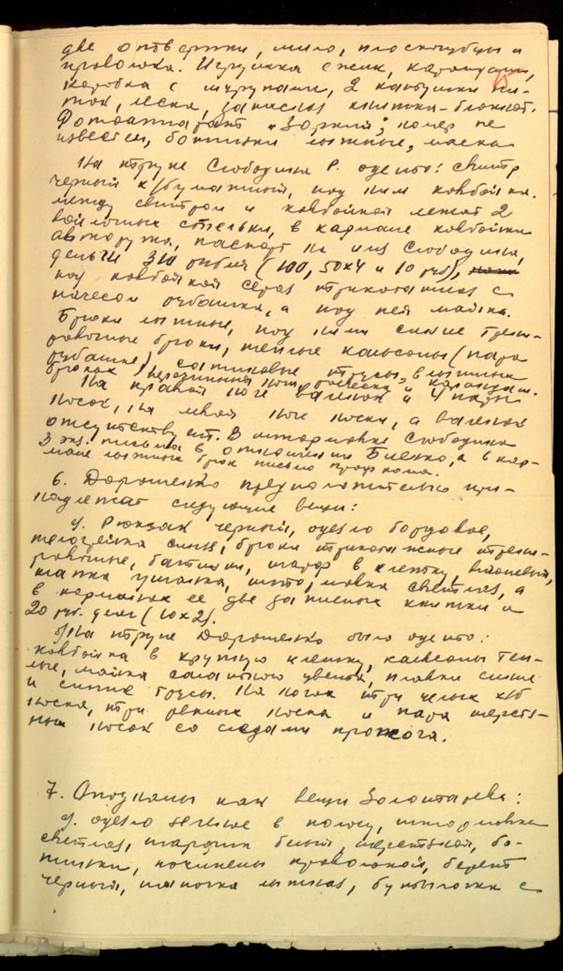 две отвертки, мыло, плоскогубцы и
проволока. Игрушка ежик, карандаши,
коробка с шурупами, 2 катушки ни-
ток, леска, записная книжка-блокнот.
Фотоаппарат "Зоркий", номер не
известен, ботинки лыжные, маска
На трупе Слободина Р. одето: свитр
черный х/бумажный, под ним ковбойка.
между свитром и ковбойкой лежат 2
войлочные стельки, в кармане ковбойки
авторучка, паспорт на имя Слободина,
деньги 310 рублей (100, 50х4 и 10 руб),
под ковбойкой серая трикотажная с
начесом рубашка, а под ней майка.
Брюки лыжные, под ними синие трени-
ровочные брюки, теплые кальсоны (пара
рубашке), сатиновые трусы, в лыжных
брюках перочинный нож, расческа и карандаш.
На правой ноге валенок и 4 пары
носок, на левой ноге носки, а валенок
отсутствует. В штормовке Слободина
3 экз. письма в, а в кар-
мане лыжных брюк письмо профкома.
6. Дорошенко предположительно при-
надлежат следующие вещи:
а). Рюкзак черный, одеяло бордовое,
телогрейка синяя, брюки трикотажные трени-
ровочные, ботинки, шарф в клетку,
шапка ушанка, светлая, а
в карманах ее две записные книжки и
20 руб. денег (10х2).
б) На трупе Дорошенко было одето:
ковбойка в крупную клетку, кальсоны теп-
лые, майка салатного цвета, плавки синие
и синие трусы. На ногах три целых х/б
носка, три рваных носка и пара шерстя-
ных носок со следами прожога.
7. Опознаны как вещи Золотарева:
а). одеяло зеленое в полосу, штормовка
светлая, шарфик белый, шерстяной, бо-
тинки, починены проволокой, берет
черный, шапочка лыжная, бутылочка с